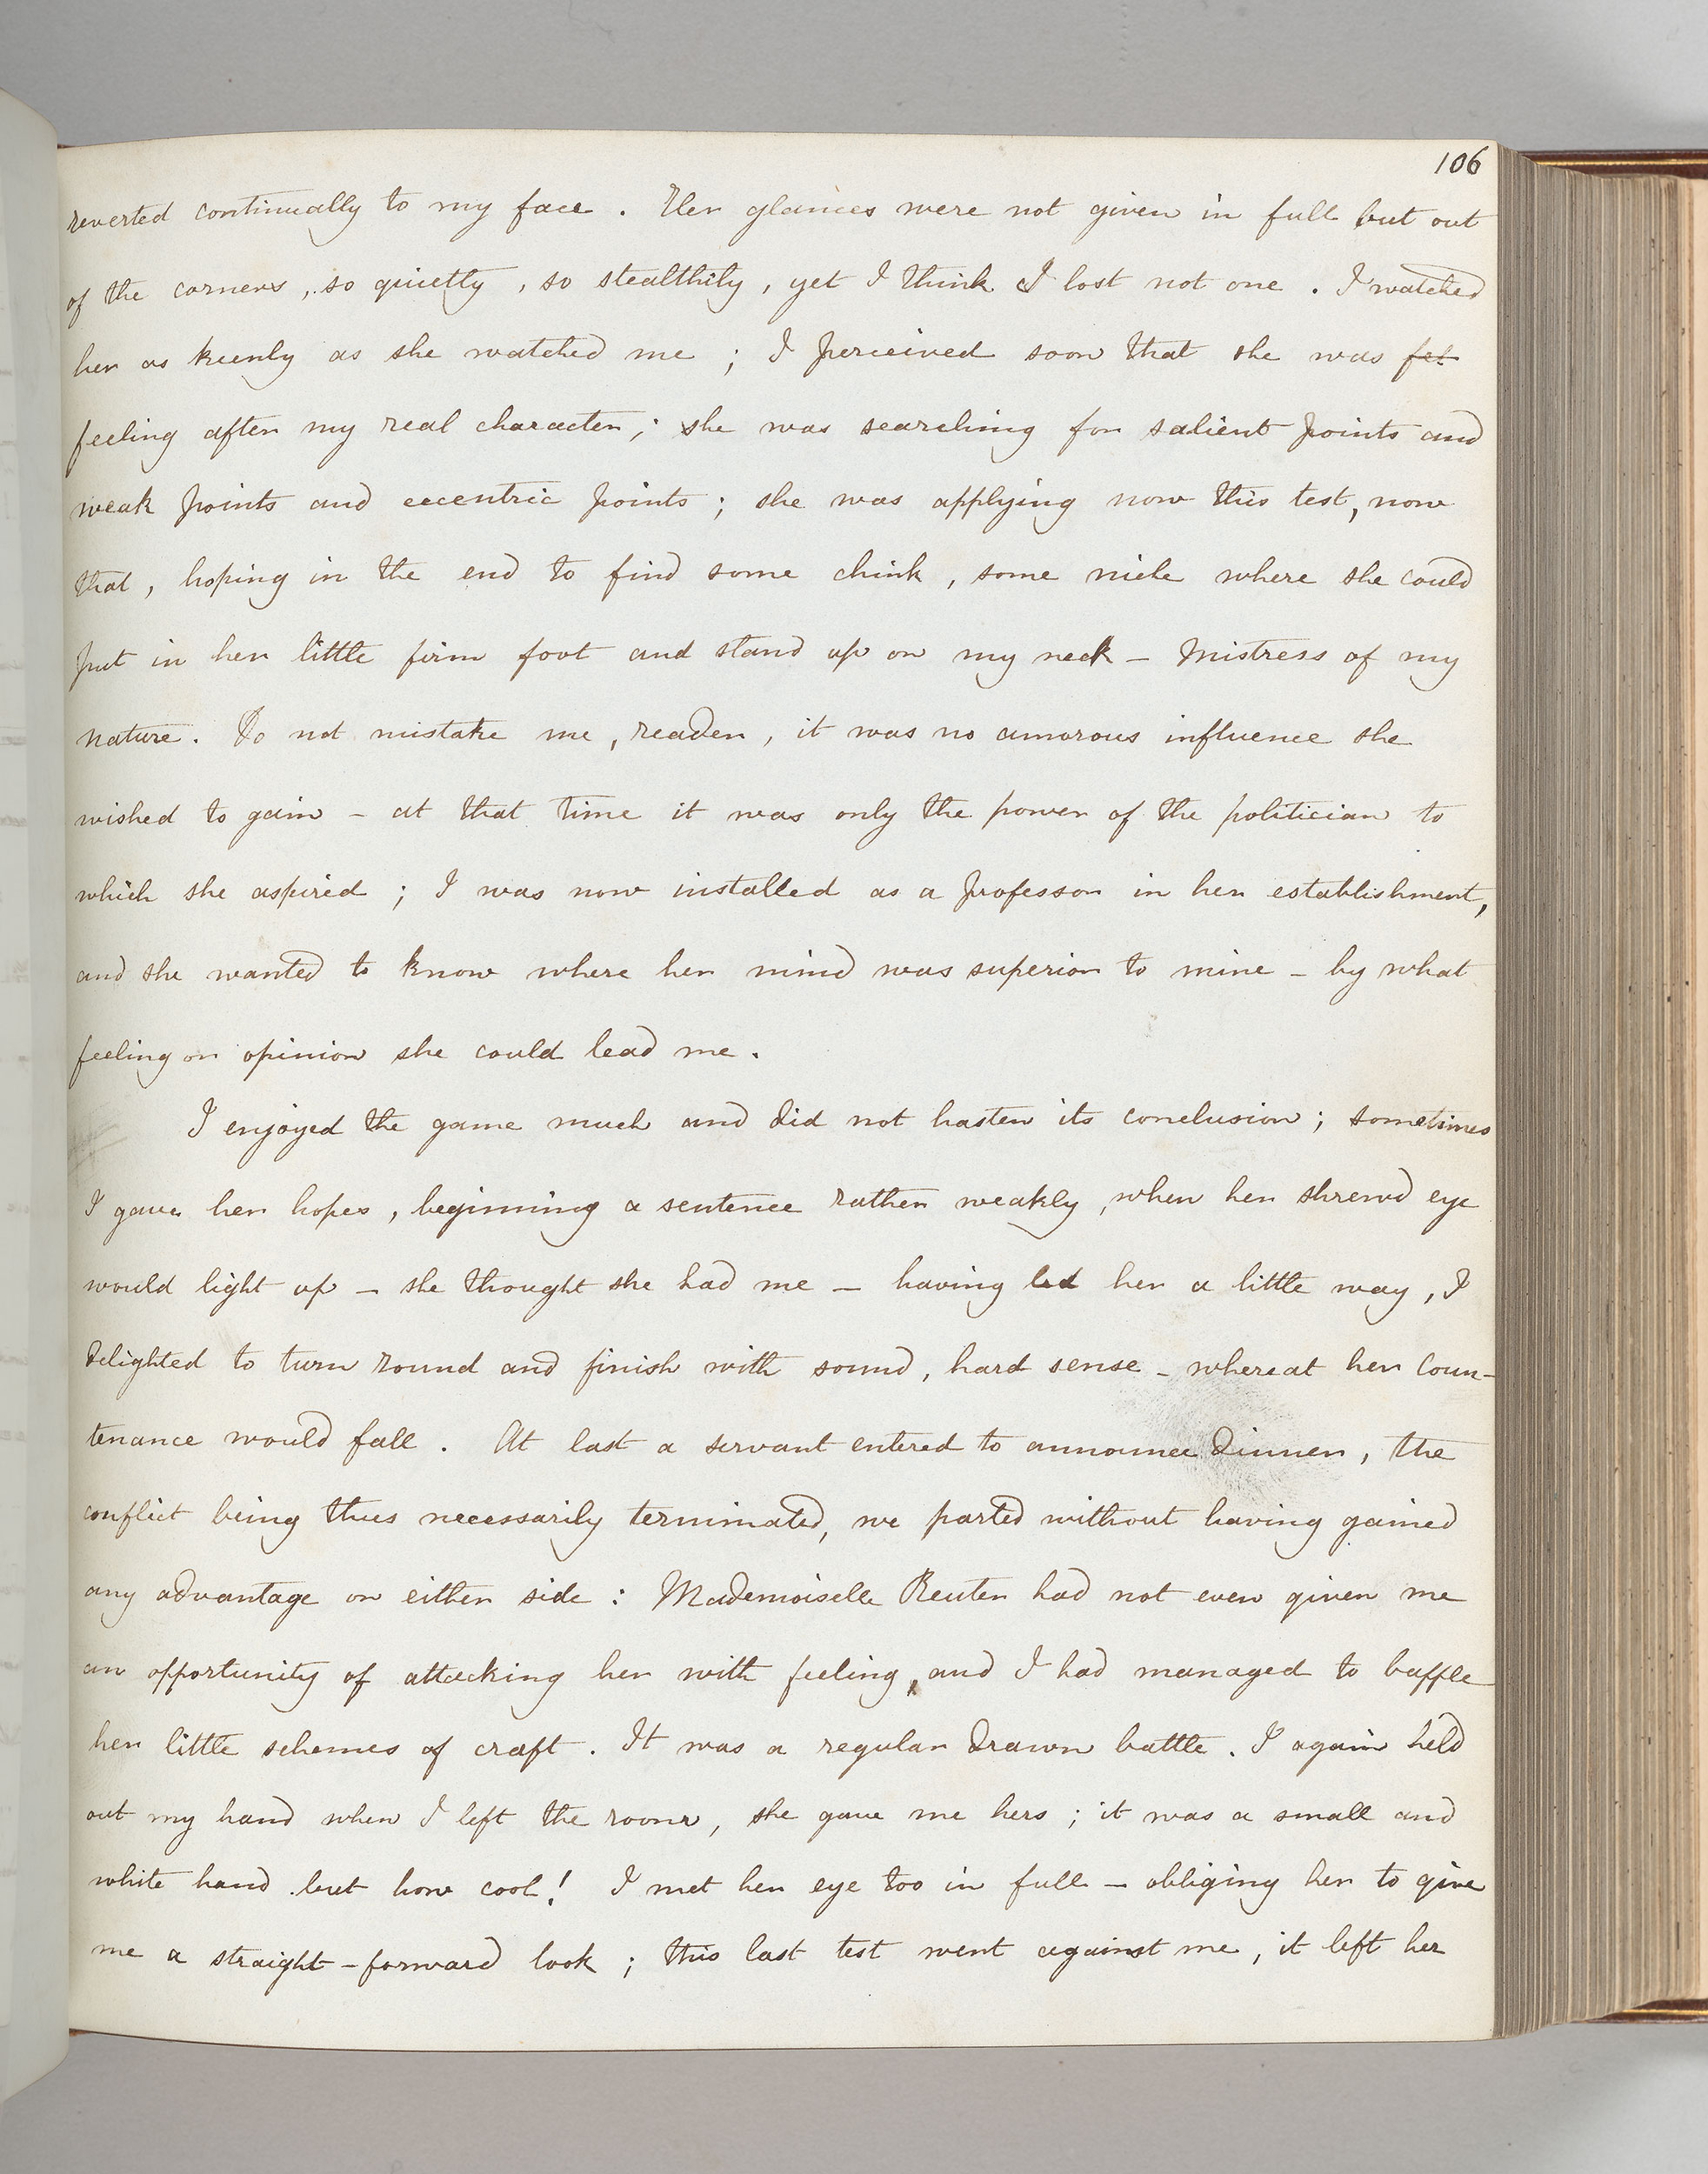 106
reverted continually to my face. Her glances were not given in full but out
of the corners, so quietly, so stealthily, yet I think I lost not one. I watched
her as keenly as she watched me; I perceived soon that she was fel
feeling after my real character; she was searching for salient points and
weak points and eccentric points; she was applying now this test, now
that, hoping in the end to find some chink, some niche where she could
put in her little firm foot and stand up on my neck – Mistress of my
nature. Do not mistake me, reader, it was no amorous influence she
wished to gain – at that time it was only the power of the politician to
which she aspired; I was now installed as a professor in her establishment,
and she wanted to know where her mind was superior to mine – by what
feeling or opinion she could lead me.
I enjoyed the game much and did not hasten its conclusion; sometimes
I gave her hopes, beginning a sentence rather weakly, when her shrewd eye
would light up – she thought she had me – having led her a little way, I
delighted to turn round and finish with sound, hard sense – whereat her coun-
tenance would fall. At last a servant entered to announce dinner, the
conflict being thus necessarily terminated, we parted without having gained
any advantage on either side: Mademoiselle Reuter had not even given me
an opportunity of attacking her with feeling, and I had managed to baffle
her little schemes of craft. It was a regular drawn battle. I again held
out my hand when I left the room, she gave me hers; it was a small and
white hand but how cool! I met her eye too in full – obliging her to give
me a straight-forward look; this last test went against me, it left her